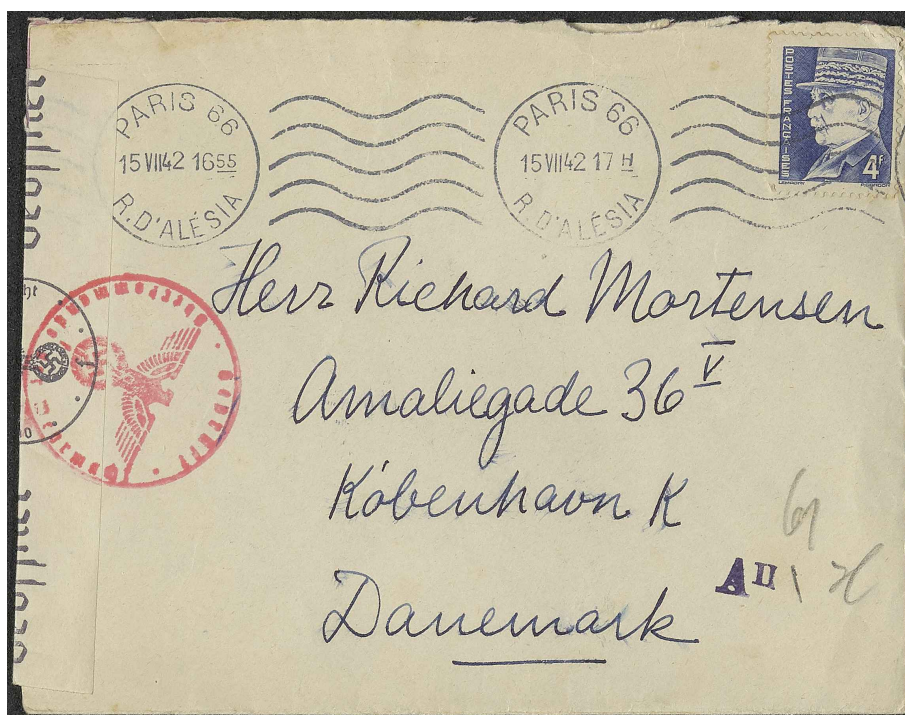 PARIS 66
15 VII 42 16 55
R. D'ALÉSIA
PARIS 66
15 VII 42 17 H
R. D'ALÉSIA
POSTES FRANÇAISES
4F
Geöffnet
Herr Richard Mortensen
Amaliegade 36 V
København K
Danemark
A II
Geöffnet